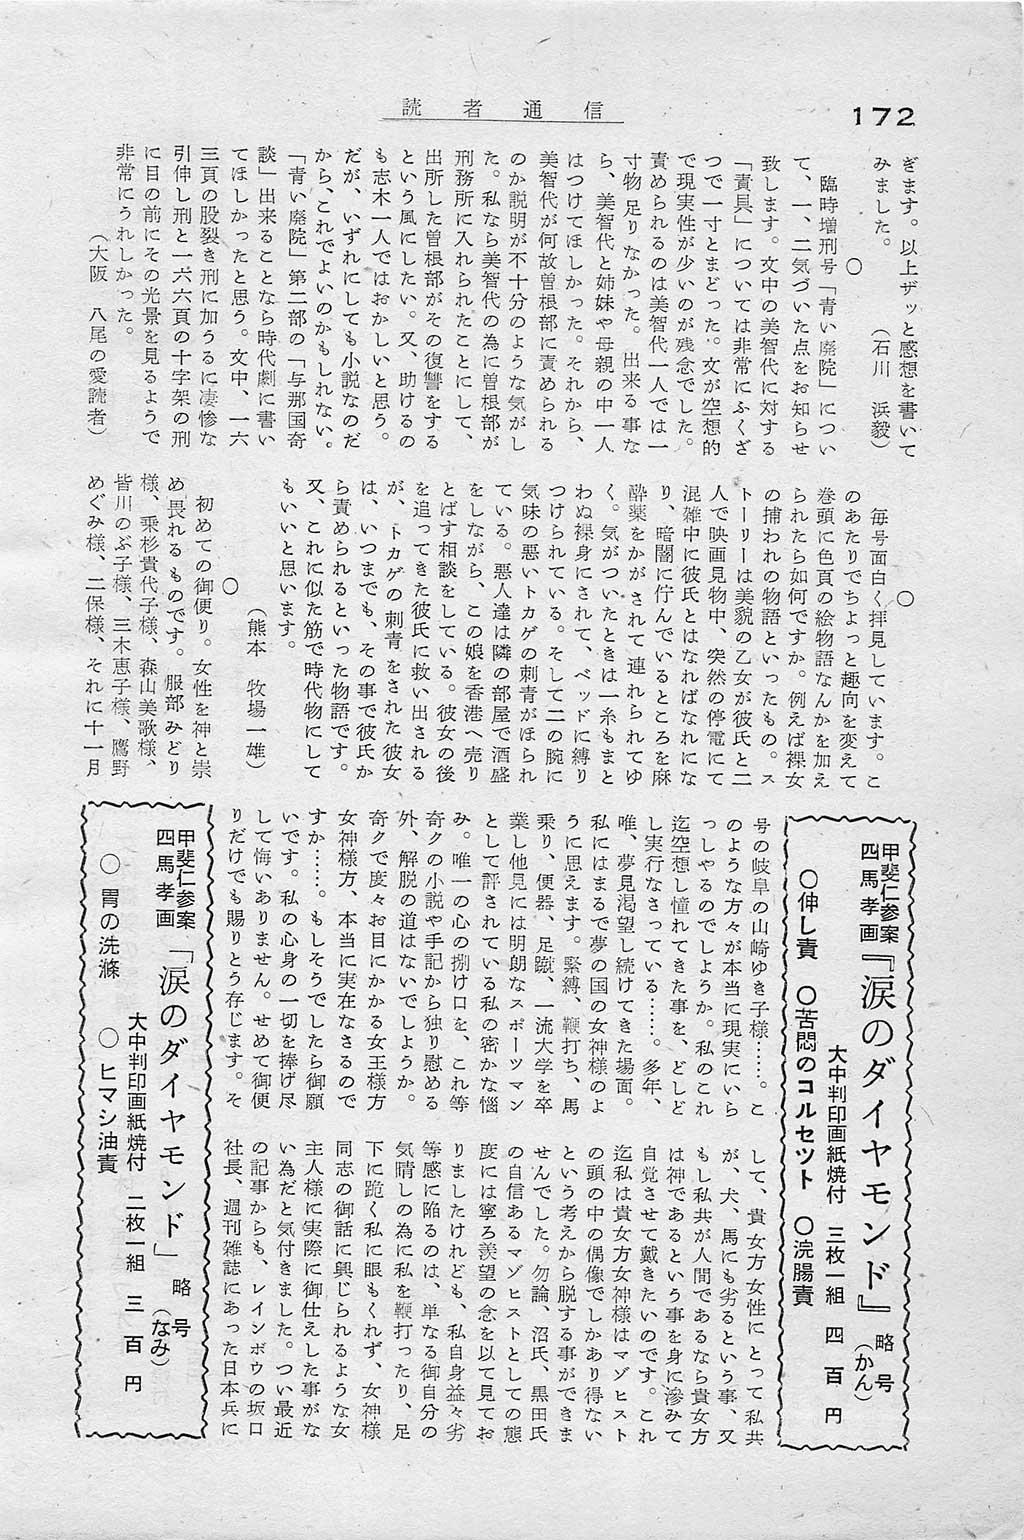 読者通信
172
ぎます。以上ザッと感想を書いて
みました。　　　（石川　浜毅）
○
臨時増刑号「青い廃院」につい
て、一、二気づいた点をお知らせ
致します。文中の美智代に対する
「責具」については非常にふくざ
つで一寸とまどった。文が空想的
で現実性が少いのが残念でした。
責められるのは美智代一人では一
寸物足りなかった。出来る事な
ら、美智代と姉妹や母親の中一人
はつけてほしかった。それから、
美智代が何故曽根部に責められる
のか説明が不十分のような気がし
た。私なら美智代の為に曽根部が
刑務所に入れられたことにして、
出所した曽根部がその復讐をする
という風にしたい。又、助けるの
も志木一人ではおかしいと思う。
だが、いずれにしても小説なのだ
から、これでよいのかもしれない。
「青い廃院」第二部の「与那国奇
談」出来ることなら時代劇に書い
てほしかったと思う。文中、一六
三頁の股裂き刑に加うるに凄惨な
引伸し刑と一六六頁の十字架の刑
に目の前にその光景を見るようで
非常にうれしかった。
（大阪　八尾の愛読者）
○
毎号面白く拝見しています。こ
のあたりでちょっと趣向を変えて
巻頭に色頁の絵物語なんかを加え
られたら如何ですか。例えば裸女
の捕われの物語といったもの。ス
トーリーは美貌の乙女が彼氏と二
人で映画見物中、突然の停電にて
混雑中に彼氏とはなればなれにな
り、暗闇に佇んでいるところを麻
酔薬をかがされて連れられてゆ
く。気がついたときは一糸もまと
わぬ裸身にされて、ベッドに縛り
つけられている。そして二の腕に
気味の悪いトカゲの刺青がほられ
ている。悪人達は隣の部屋で酒盛
をしながら、この娘を香港へ売り
とばす相談をしている。彼女の後
を追ってきた彼氏に救い出される
が、トカゲの刺青をされた彼女
は、いつまでも、その事で彼氏か
ら責められるといった物語です。
又、これに似た筋で時代物にして
もいいと思います。
（熊本　牧場一雄）
○
初めての御便り。女性を神と崇
め畏れるものです。服部みどり
様、乗杉貴代子様、森山美歌様、
皆川のぶ子様、三木恵子様、鷹野
めぐみ様、二保様、それに十一月
号の岐阜の山崎ゆき子様……。こ
のような方々が本当に現実にいら
っしやるのでしょうか。私のこれ
迄空想し憧れてきた事を、どしど
し実行なさっている……。多年、
唯、夢見渇望し続けてきた場面。
私にはまるで夢の国の女神様のよ
うに思えます。緊縛、鞭打ち、馬
乗り、便器、足蹴、一流大学を卒
業し他見には明朗なスポーツマン
として評されている私の密かな悩
み。唯一の心の捌け口を、これ等
奇クの小説や手記から独り慰める
外、解脱の道はないでしょうか。
奇クで度々お目にかかる女王様方
女神様方、本当に実在なさるので
すか……。もしそうでしたら御願
いです。私の心身の一切を捧げ尽
して悔いありません。せめて御便
りだけでも賜りとう存じます。そ
して、貴女方女性にとって私共
が、犬、馬にも劣るという事、又
もし私共が人間であるなら貴女方
は神であるという事を身に滲みて
自覚させて戴きたいのです。これ
迄私は貴女方女神様はマゾヒスト
の頭の中の偶像でしかあり得ない
という考えから脱する事ができま
せんでした。勿論、沼氏、黒田氏
の自信あるマゾヒストとしての態
度には寧ろ羨望の念を以て見てお
りましたけれども、私自身益々劣
等感に陥るのは、単なる御自分の
気晴しの為に私を鞭打ったり、足
下に跪く私に眼もくれず、女神様
同志の御話に興じられるような女
主人様に実際に御仕えした事がな
い為だと気付きました。つい最近
の記事からも、レインボウの坂口
社長、週刊雑誌にあった日本兵に
甲斐仁参案
四馬孝画
『涙のダイヤモンド』
略号
（かん）
大中判印画紙焼付　三枚一組　四百円
○伸し責　○苦悶のコルセット　○浣腸責
甲斐仁参案
四馬孝画
「涙のダイヤモンド」
略号
（なみ）
大中判印画紙焼付　二枚一組　三百円
○胃の洗滌　○ヒマシ油責